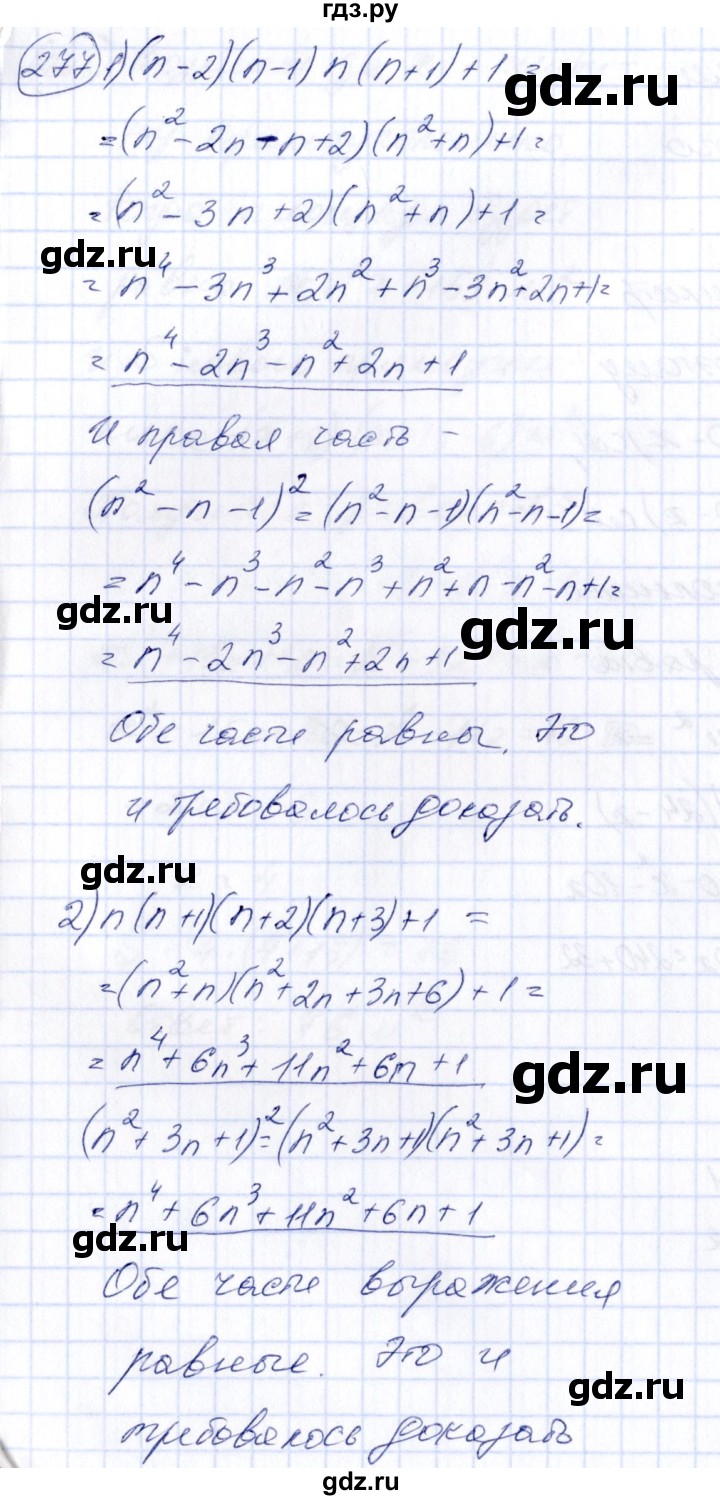 гдз.ру
277 1) (n-2)(n-1)n(n+1)+1=
=(n²-2n-n+2)(n²+n)+1=
=(n²-3n+2)(n²+n)+1=
gdz.ru
=n⁴-3n³+2n²+n³-3n²+2n+1=
gdz.ru
=n⁴-2n³-n²+2n+1
И правая часть -
(n²-n-1)²=(n²-n-1)(n²-n-1)=
=n⁴-n³-n²-n³+n²+n-n²-n+1=
gdz.ru
gdz.ru
=n⁴-2n³-n²+2n+1
Обе части равны. Это
и требовалось доказать.
gdz.ru
2) n(n+1)(n+2)(n+3)+1=
=(n²+n)(n²+2n+3n+6)+1=
=n⁴+6n³+11n²+6n+1
gdz.ru
(n²+3n+1)²=(n²+3n+1)(n²+3n+1)=
=n⁴+6n³+11n²+6n+1
gdz.ru
Обе части выражения
равные. Это и
gdz.ru
требовалось доказать
gdz.ru